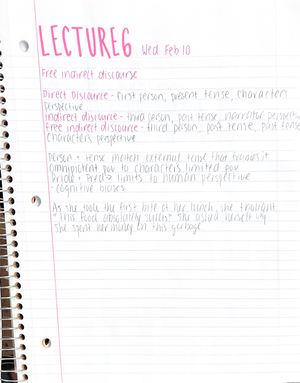 LECTURE 6 Wed Feb 10
Free indirect discourse
Direct Discource - First person, present tense, characters
perspective
Indirect discource - third person, past tense, narrator perspective
Free indirect discource - third person, past tense, past tense
characters perspective
Person + tense match external tense that frames it
Omnipotent pov to characters limited pov
Pride + Pred → limits to human perspective
- cognitive biases
As she took the first bite of her lunch, she thought
"this food absolutely sucks" she asked herself why
she spent her money on this garbage.